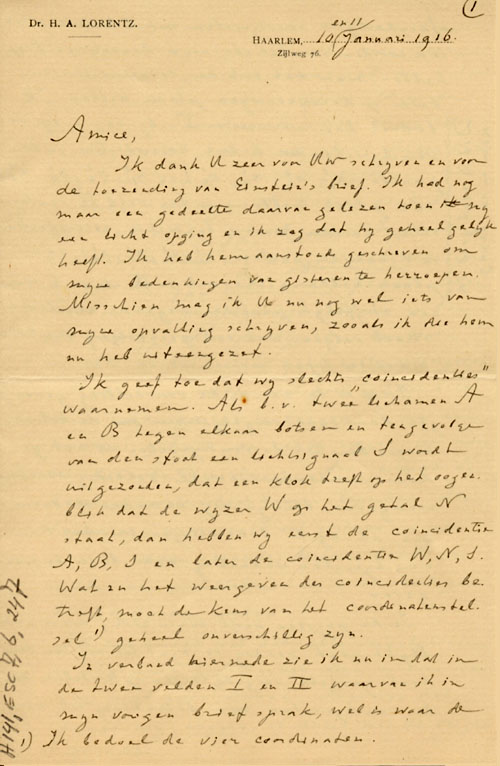 1
Dr. H. A. LORENTZ.
en 11
HAARLEM, 10 Januari 1916.
Zijlweg 76.
Amice,
Ik dank U zeer voor Uw schrijven en voor
de toezending van Einstein's brief. Ik had nog
maar een gedeelte daarvan gelezen toen mij
een licht opging en ik zag dat hij geheel gelijk
heeft. Ik heb hem aanstonds geschreven om
mijne bedenkingen van gisteren te herroepen.
Misschien mag ik U nu nog wel iets van
mijne opvatting schrijven, zooals ik die hem
nu heb uiteengezet.
Ik geef toe dat wij slechts "coincidenties"
waarnemen. Als b.v. twee lichamen A
en B tegen elkaar botsen en tengevolge
van den stoot een lichtsignaal S wordt
uitgezonden, dat een klok treft op het oogen
blik dat de wijzer W op het getal N
staat, dan hebben wij eerst de coincidentie
A, B, S en later de coincidentie W, N, S.
Wat nu het weergeven der coincidenties be
treft, mocht de keus van het coordinatenstel
sel 1) geheel onverschillig zijn.
In verband hiermede zie ik nu in dat in
de twee velden I en II waarvan ik in
mijn vorigen brief sprak, wel is waar de
1) Ik bedoel de vier coordinaten.